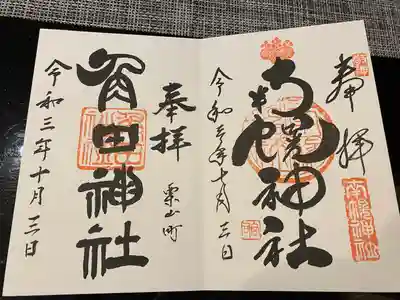 奉拝
南幌神社
南幌神社
令和三年十月三日
奉拝
栗山町
角田神社
令和三年十月三日